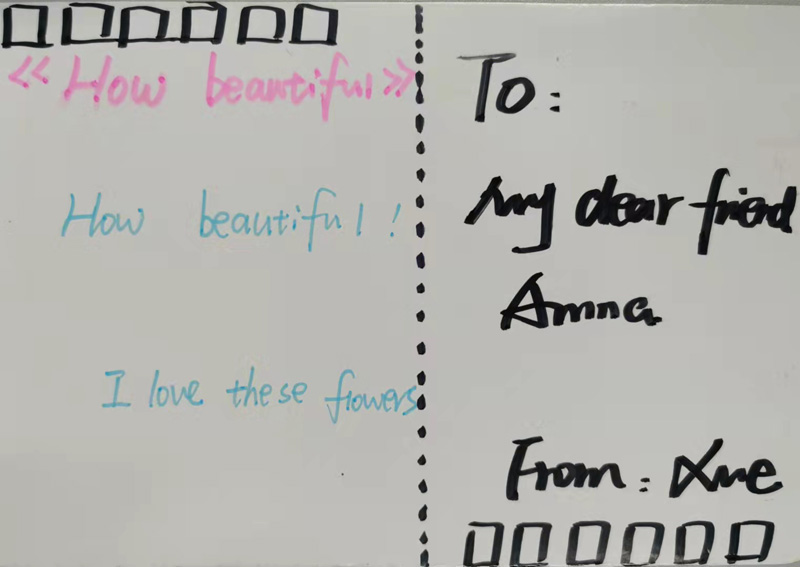 《How beautiful》
How beautiful!
I love these flowers
To:
my dear friend
Amna
From: Xue